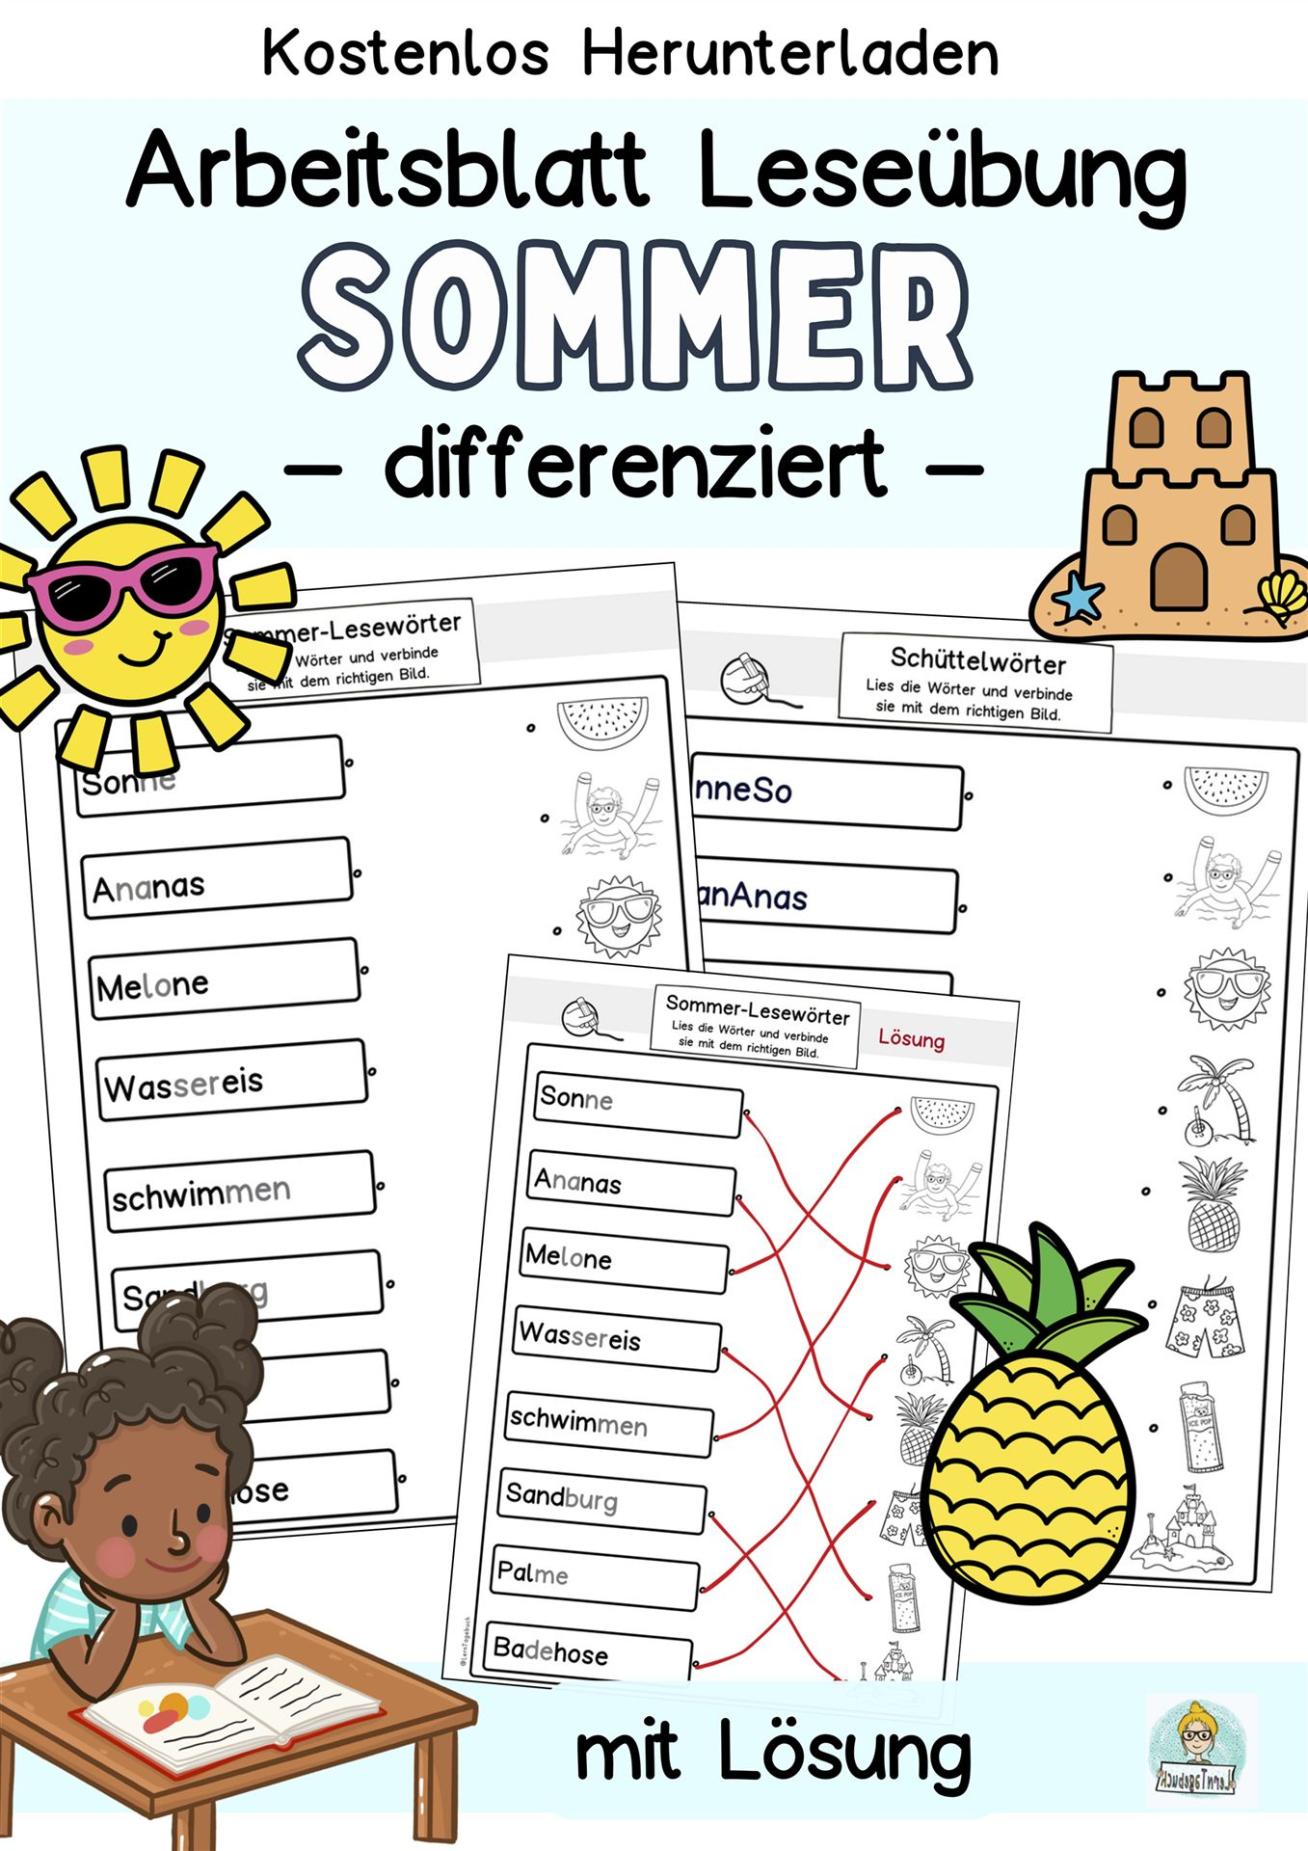 Kostenlos Herunterladen
Arbeitsblatt Leseübung
SOMMER
– differenziert –
mmer-Lesewörter
Wörter und verbinde
sie mit dem richtigen Bild.
Sonne
Ananas
Melone
Wassereis
schwimmen
Sandburg
ose
Schüttelwörter
Lies die Wörter und verbinde
sie mit dem richtigen Bild.
nneSo
anAnas
ICE POP
Sommer-Lesewörter
Lies die Wörter und verbinde
sie mit dem richtigen Bild.
Lösung
Sonne
Ananas
Melone
Wassereis
schwimmen
Sandburg
Palme
Badehose
ICE POP
@LernTagebuch
mit Lösung
LernTagebuch